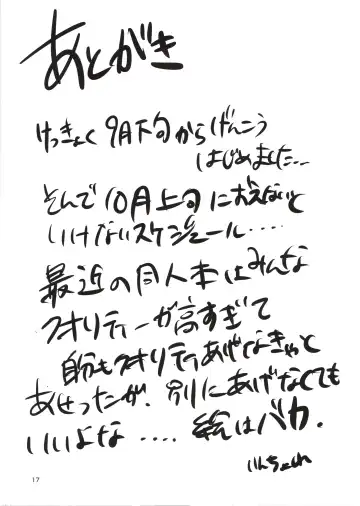 あとがき
けっきょく9月下旬からげんこう
はじめました...
そんで10月上旬におえないと
いけないスケジュール....
最近の同人本はみんな
クオリティーが高すぎて
自分もクオリティあげなきゃと
あせったが、別にあげなくても
いいよな....絵はバカ.
17